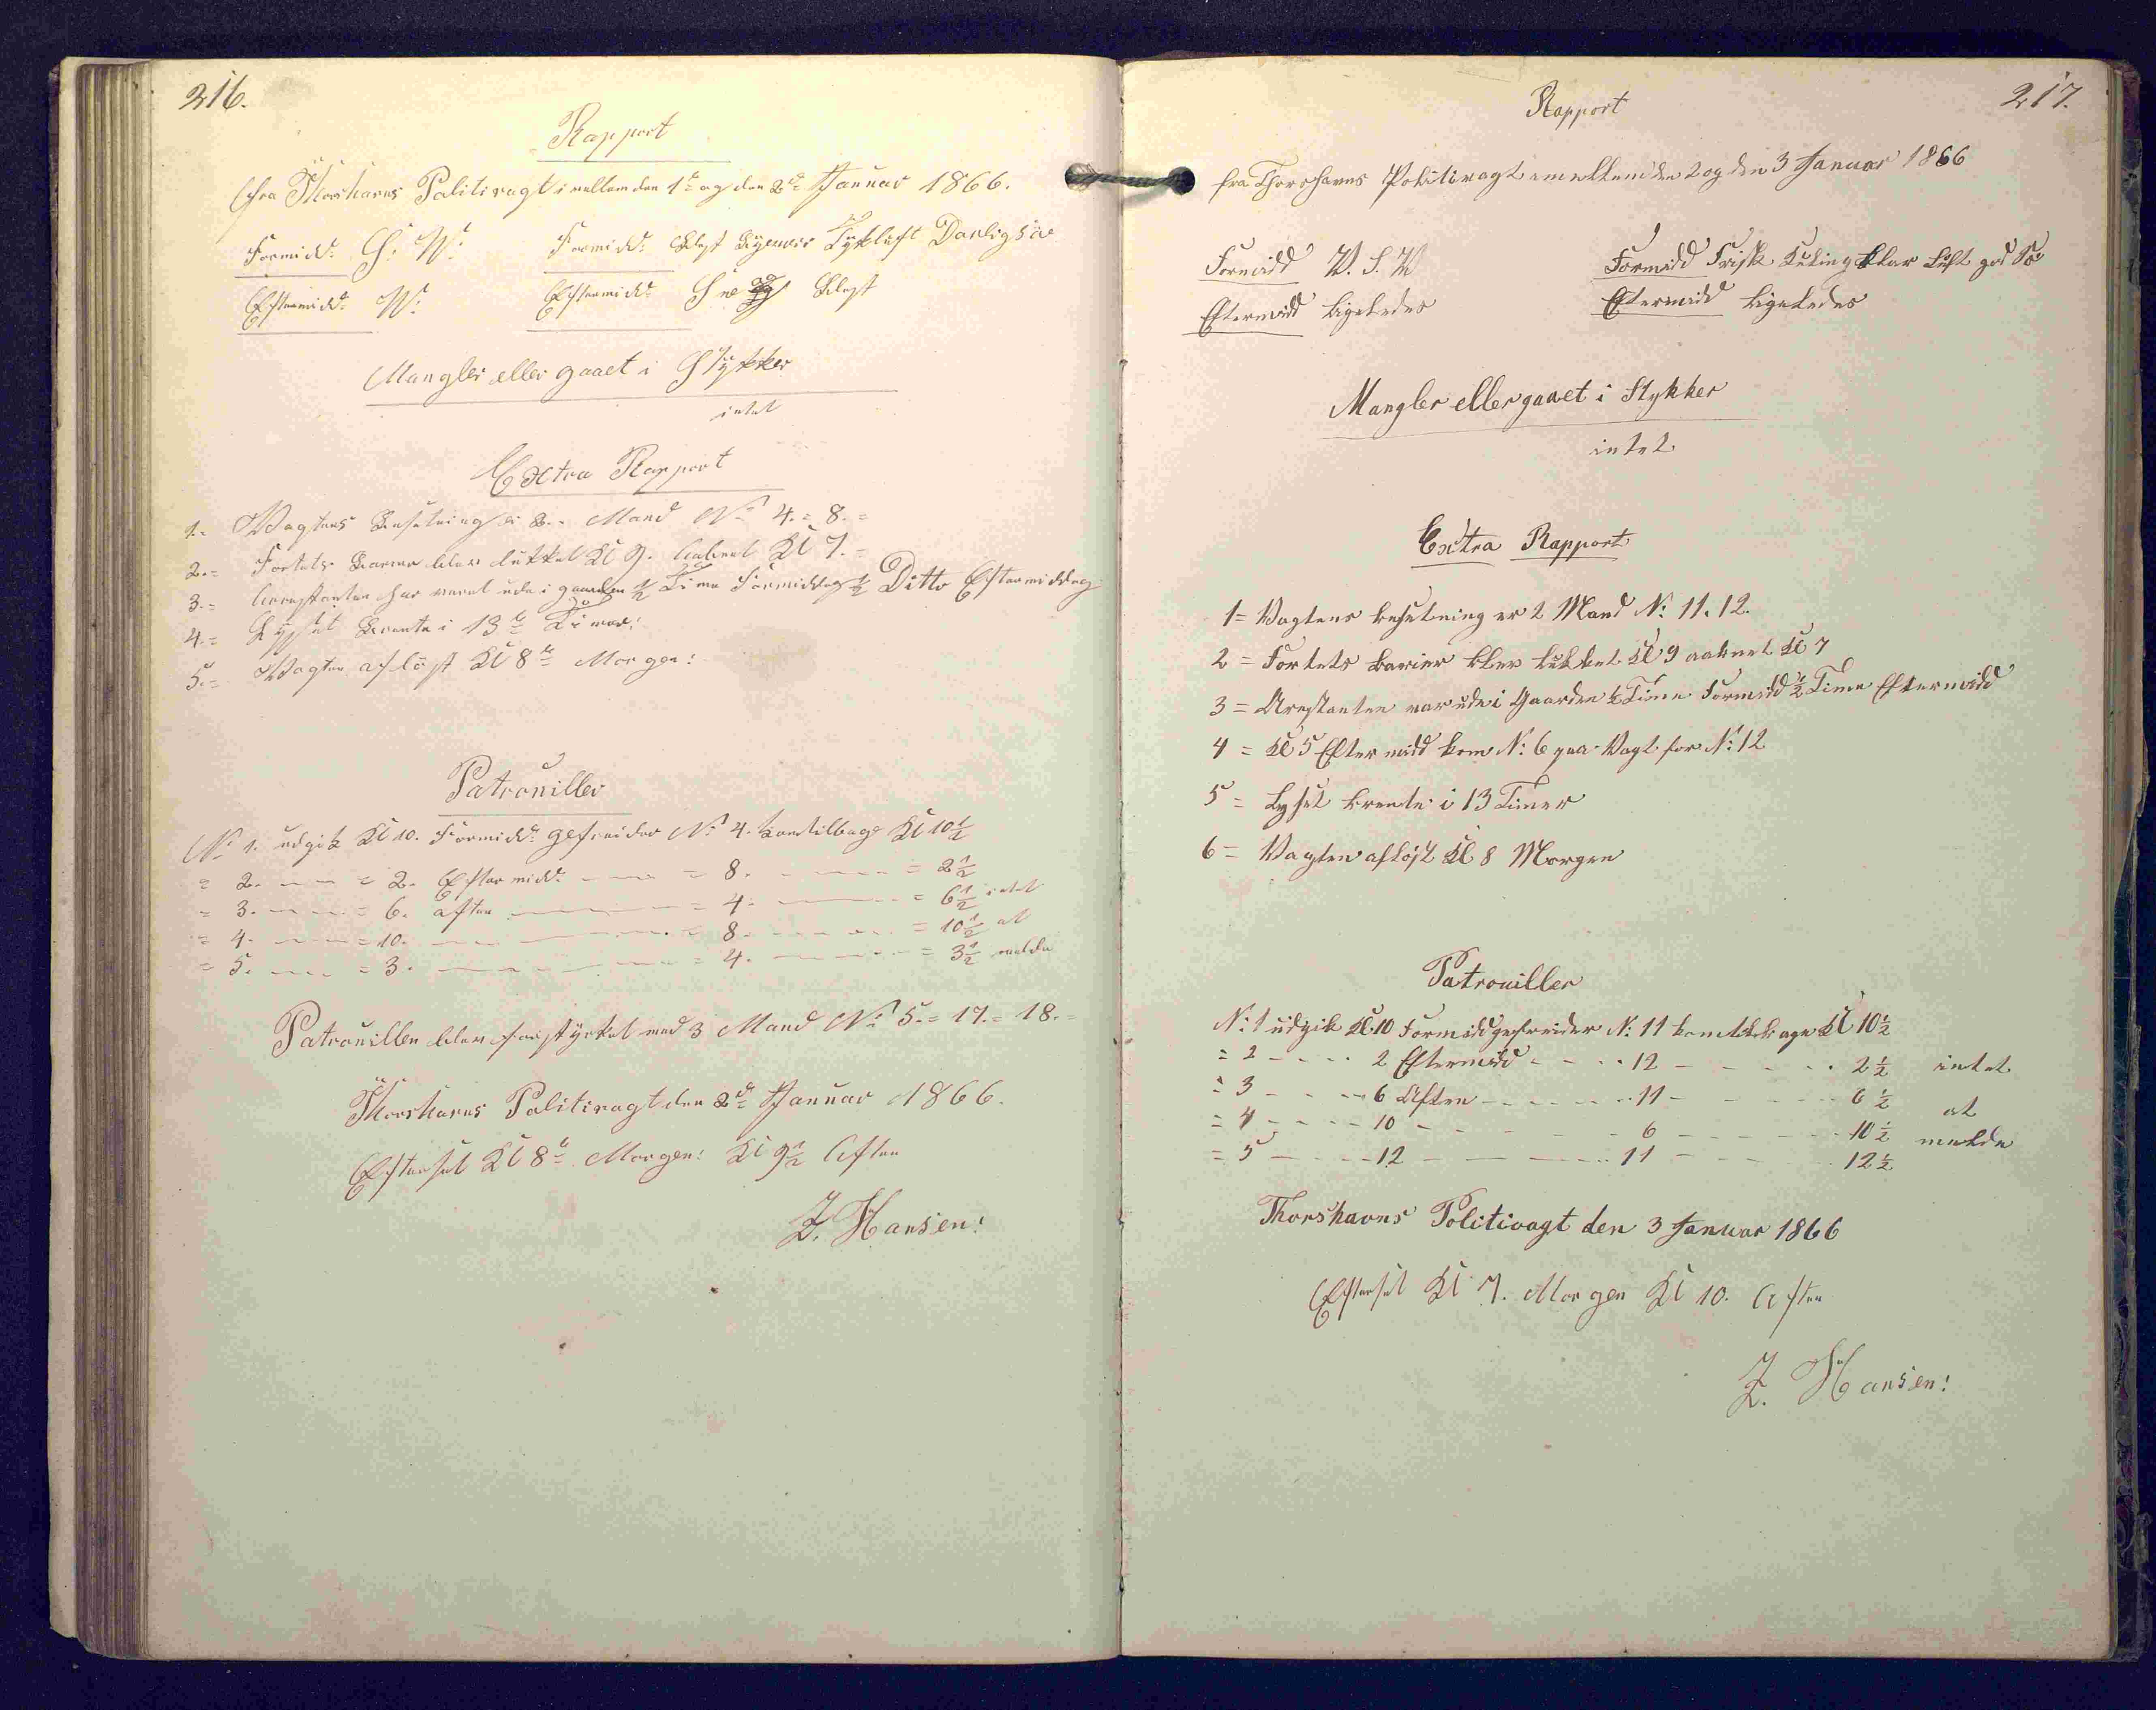 216.
Rapport
fra Thorshavns Politivagt imellem den 1te og den 2de Januar 1866.
Formidd: S: W: Formidd: Blæst Tykluft Daarlig Söe
Eftermidd: W: Eftermidd: Sne og Blæst
Mangler eller gaaet i Stykker
intet
Extra Rapport
1.= Vagtens Besetning er 2.= Mand No 4.= 8.=
2.= Fortets Barier blev lukket Kl 9. Aabnet Kl 7.=
3.= Arrestanten har været ude i gaarden 1/2 Time Formiddag 1/2 Ditto Eftermiddag
4.= Lyset Brænte i 13 Timer:
5.= Vagten aflöst Kl 8te Morgen:
Patrouiller
No 1. udgik Kl 10. Formidd: gefreider No 4. kom tilbage Kl 10 1/2
= 2. — — = 2. Eftermidd: — — = 8. — — — = 2 1/2
= 3. — — = 6. aften — — — = 4. — — — = 6 1/2 intet
= 4. — — = 10. — — — = 8. — — — = 10 1/2 at
= 5. — — = 3. — — — = 4. — — — = 3 1/2 melde
Patrouillen blev forstyrket med 3 Mand No 5.= 17.= 18.=
Thorshavns Politivagt den 2de Januar 1866.
Efterset Kl 8te Morgen: Kl 9 1/2 Aften
Z. Hansen:
217.
Rapport
fra Thorshavns Politivagt emellem den 2 og den 3 Januar 1866
Formidd V. S. V Formidd Frisk Kuling klar Luft god Sö
Eftermidd ligeledes Eftermidd ligeledes
Mangler eller gaaet i Stykker
intet
Extra Rapport
1 = Vagtens besetning er 2 Mand N: 11. 12.
2 = Fortets barier blev lukket Kl 9 aabnet Kl 7
3 = Arestanten var ude i Gaarden 1/2 Time Formidd 1/2 Time Eftermidd
4 = Kl 5 Eftermidd kom N: 6 paa Vagt for N: 12
5 = Lyset brente i 13 Timer
6 = Vagten aflöst Kl 8 Morgen
Patrouiller
N: 1 udgik Kl 10 Formidd gefreider N: 11 kom tilbage Kl 10 1/2
= 2 - - - - 2 Eftermidd - - - - 12 - - - - 2 1/2 intet
= 3 - - - - 6 Aften - - - - 11 - - - - 6 1/2 at
= 4 - - - - 10 - - - - 6 - - - - 10 1/2 melde
= 5 - - - - 12 - - - - 11 - - - - 12 1/2
Thorshavns Politivagt den 3 Januar 1866
Efterset Kl 7. Morgen Kl 10. Aften
Z. Hansen: